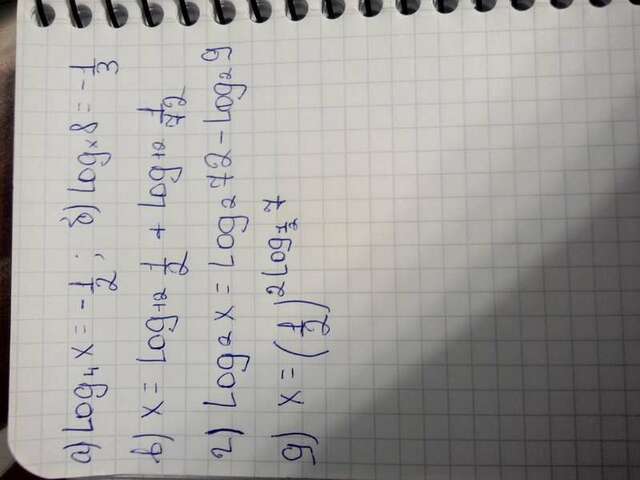 а) Log₄ x = -1/2 ; б) Logₓ 8 = -1/3
в) x = Log₁₂ 1/2 + Log₁₂ 1/72
г) Log₂ x = Log₂ 72 - Log₂ 9
д) x = (1/2)^(2 Log_(1/2) 7)